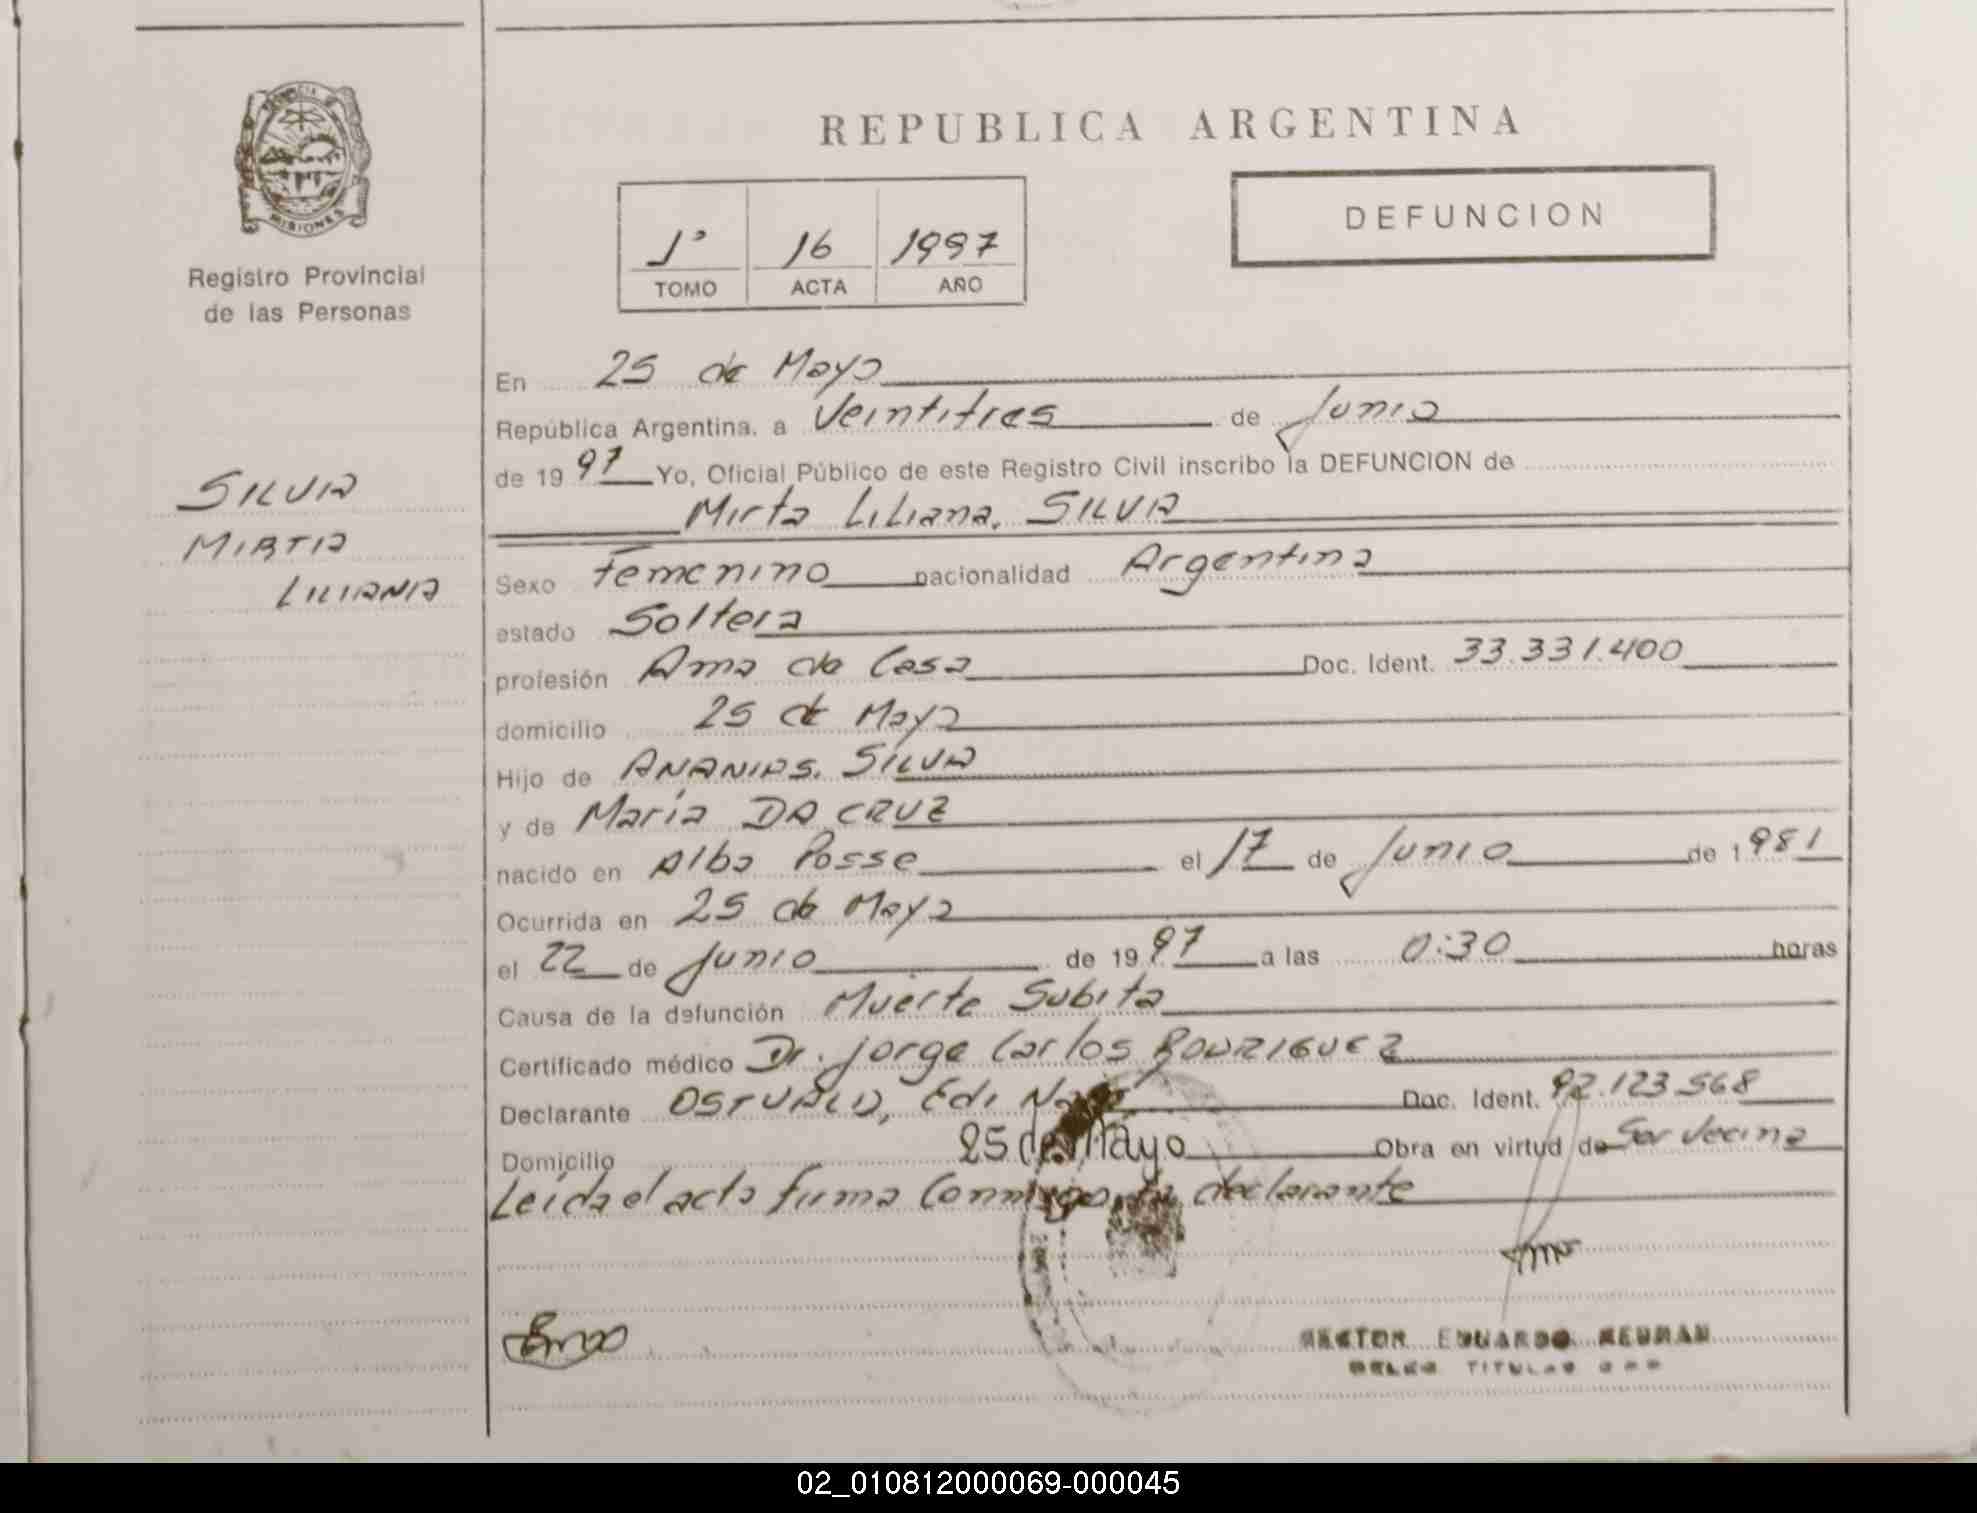 PROVINCIA DE
MISIONES
Registro Provincial
de las Personas
SILVA
MIRTA
LILIANA
REPUBLICA ARGENTINA
DEFUNCION
1º 16 1997
TOMO ACTA AÑO
En 25 de Mayo
República Argentina, a Veintitres de Junio
de 19 97 Yo, Oficial Público de este Registro Civil inscribo la DEFUNCION de
Mirta Liliana, SILVA
Sexo Femenino nacionalidad Argentina
estado Soltera
profesión Ama de Casa Doc. Ident. 33.331.400
domicilio 25 de Mayo
Hijo de ANANIAS. SILVA
y de María DA CRUZ
nacido en Alba Posse el 17 de Junio de 1981
Ocurrida en 25 de Mayo
el 22 de Junio de 19 97 a las 0:30 horas
Causa de la defunción Muerte Subita
Certificado médico Dr. Jorge Carlos RODRIGUEZ
Declarante OSTVALD, Edi Doc. Ident. 92.123.568
Domicilio 25 de Mayo Obra en virtud de Ser Vecina
Leída el acta firma Conmigo, la declarante
HECTOR EDUARDO
TITULAR
02_010812000069-000045